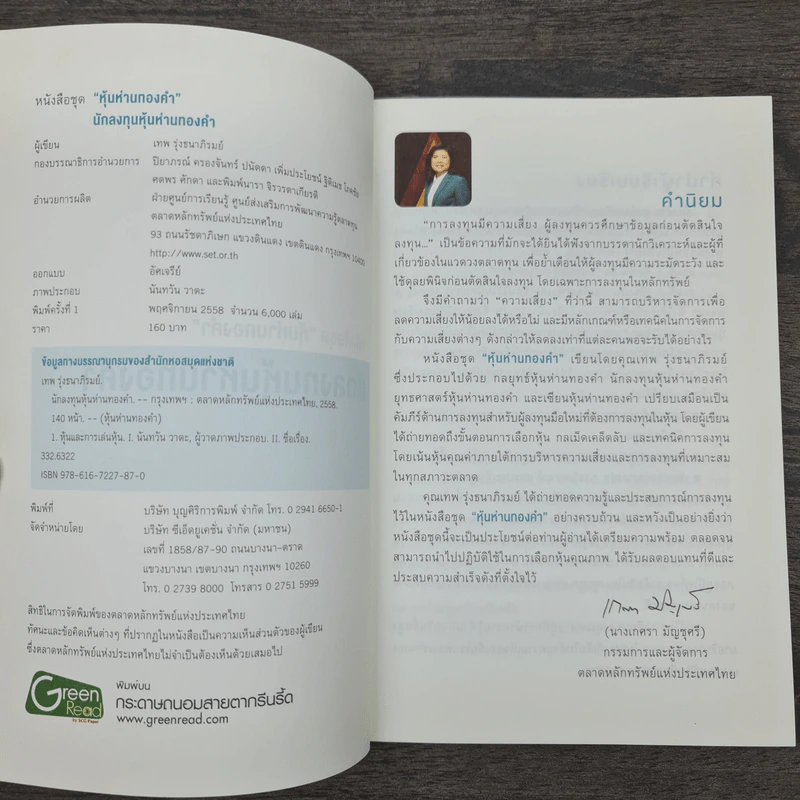 หนังสือชุด "หุ้นห่านทองคำ"
นักลงทุนหุ้นห่านทองคำ
ผู้เขียน เทพ รุ่งธนาภิรมย์
กองบรรณาธิการอำนวยการ ปิยาภรณ์ ครองจันทร์ ปนัดดา เพิ่มประโยชน์ ฐิติเมธ โภคชัย
คตพร ศักดา และพิมพ์นารา จิรวรตาเกียรติ
อำนวยการผลิต ฝ่ายศูนย์การเรียนรู้ ศูนย์ส่งเสริมการพัฒนาความรู้ตลาดทุน
ตลาดหลักทรัพย์แห่งประเทศไทย
93 ถนนรัชดาภิเษก แขวงดินแดง เขตดินแดง กรุงเทพฯ 10400
http://www.set.or.th
ออกแบบ อัศเจรีย์
ภาพประกอบ นันทวัน วาตะ
พิมพ์ครั้งที่ 1 พฤศจิกายน 2558 จำนวน 6,000 เล่ม
ราคา 160 บาท
ข้อมูลทางบรรณานุกรมของสำนักหอสมุดแห่งชาติ
เทพ รุ่งธนาภิรมย์.
นักลงทุนหุ้นห่านทองคำ. -- กรุงเทพฯ : ตลาดหลักทรัพย์แห่งประเทศไทย, 2558.
140 หน้า. -- (หุ้นห่านทองคำ)
1. หุ้นและการเล่นหุ้น. I. นันทวัน วาตะ, ผู้วาดภาพประกอบ. II. ชื่อเรื่อง.
332.6322
ISBN 978-616-7227-87-0
พิมพ์ที่ บริษัท บุญศิริการพิมพ์ จำกัด โทร. 0 2941 6650-1
จัดจำหน่ายโดย บริษัท ซีเอ็ดยูเคชั่น จำกัด (มหาชน)
เลขที่ 1858/87-90 ถนนบางนา-ตราด
แขวงบางนา เขตบางนา กรุงเทพฯ 10260
โทร. 0 2739 8000 โทรสาร 0 2751 5999
สิทธิในการจัดพิมพ์ของตลาดหลักทรัพย์แห่งประเทศไทย
ทัศนะและข้อคิดเห็นต่างๆ ที่ปรากฏในหนังสือเป็นความเห็นส่วนตัวของผู้เขียน
ซึ่งตลาดหลักทรัพย์แห่งประเทศไทยไม่จำเป็นต้องเห็นด้วยเสมอไป
Green Read
by SCG Paper
พิมพ์บน
กระดาษถนอมสายตากรีนรี้ด
www.greenread.com
คำนิยม
"การลงทุนมีความเสี่ยง ผู้ลงทุนควรศึกษาข้อมูลก่อนตัดสินใจ
ลงทุน..." เป็นข้อความที่มักจะได้ยินได้ฟังจากบรรดานักวิเคราะห์และผู้ที่
เกี่ยวข้องในแวดวงตลาดทุน เพื่อย้ำเตือนให้ผู้ลงทุนมีความระมัดระวัง และ
ใช้ดุลยพินิจก่อนตัดสินใจลงทุน โดยเฉพาะการลงทุนในหลักทรัพย์
จึงมีคำถามว่า "ความเสี่ยง" ที่ว่านี้ สามารถบริหารจัดการเพื่อ
ลดความเสี่ยงให้น้อยลงได้หรือไม่ และมีหลักเกณฑ์หรือเทคนิคในการจัดการ
กับความเสี่ยงต่างๆ ดังกล่าวให้ลดลงเท่าที่แต่ละคนพอจะรับได้อย่างไร
หนังสือชุด "หุ้นห่านทองคำ" เขียนโดยคุณเทพ รุ่งธนาภิรมย์
ซึ่งประกอบไปด้วย กลยุทธ์หุ้นห่านทองคำ นักลงทุนหุ้นห่านทองคำ
ยุทธศาสตร์หุ้นห่านทองคำ และเซียนหุ้นห่านทองคำ เปรียบเสมือนเป็น
คัมภีร์ด้านการลงทุนสำหรับผู้ลงทุนมือใหม่ที่ต้องการลงทุนในหุ้น โดยผู้เขียน
ได้ถ่ายทอดถึงขั้นตอนการเลือกหุ้น กลเม็ดเคล็ดลับ และเทคนิคการลงทุน
โดยเน้นหุ้นคุณค่าภายใต้การบริหารความเสี่ยงและการลงทุนที่เหมาะสม
ในทุกสภาวะตลาด
คุณเทพ รุ่งธนาภิรมย์ ได้ถ่ายทอดความรู้และประสบการณ์การลงทุน
ไว้ในหนังสือชุด "หุ้นห่านทองคำ" อย่างครบถ้วน และหวังเป็นอย่างยิ่งว่า
หนังสือชุดนี้จะเป็นประโยชน์ต่อท่านผู้อ่านได้เตรียมความพร้อม ตลอดจน
สามารถนำไปปฏิบัติใช้ในการเลือกหุ้นคุณภาพ ได้รับผลตอบแทนที่ดีและ
ประสบความสำเร็จดังที่ตั้งใจไว้
(นางเกศรา มัญชุศรี)
กรรมการและผู้จัดการ
ตลาดหลักทรัพย์แห่งประเทศไทย